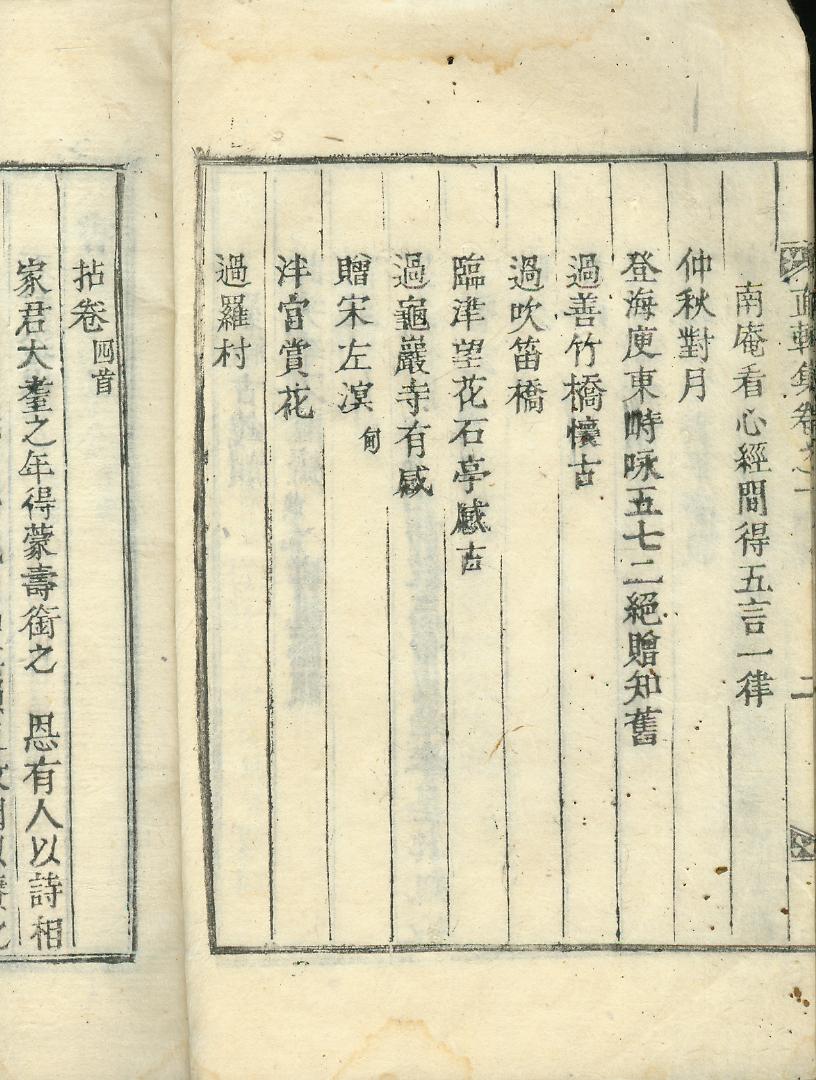 軒集卷之 二
南庵看心經間得五言一律
仲秋對月
登海庾東時咏五七二絕贈知舊
過善竹橋懷古
過吹笛橋
臨津望花石亭感古
過龜巖寺有感
贈宋左溟
泮宮賞花
過羅村
拈卷四首
家君大耋之年得蒙壽銜之 恩有人以詩相